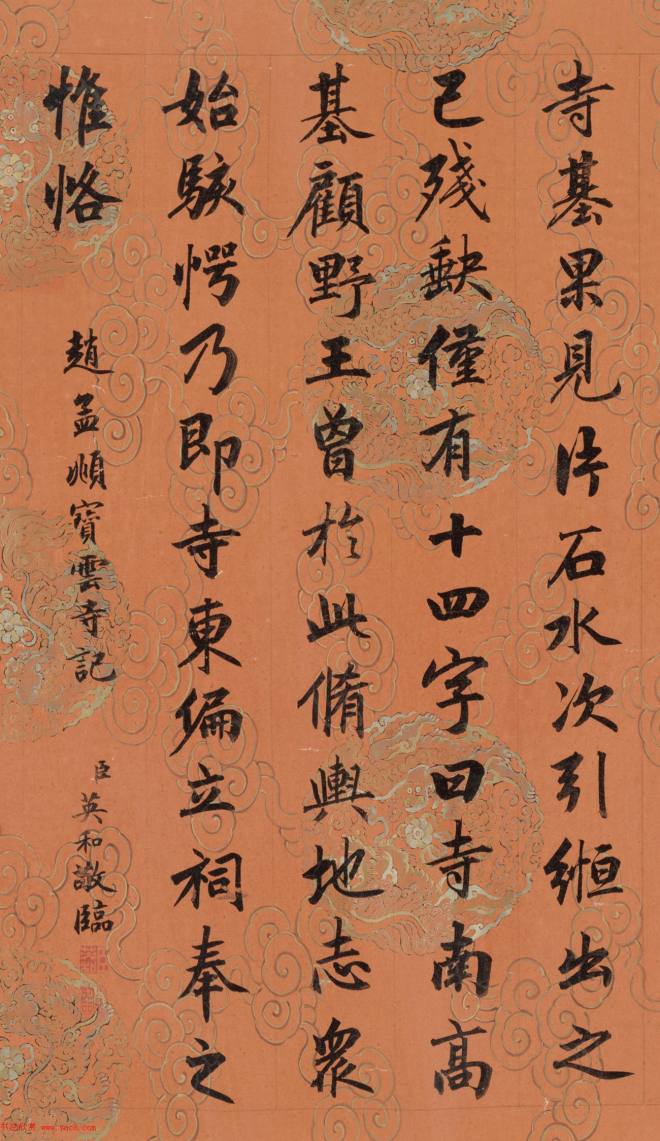 寺基果見片石水次引縆出之
已殘缺僅有十四字曰寺南高
基顧野王曾於此脩輿地志眾
始駭愕乃即寺東偏立祠奉之
惟恪
趙孟頫寶雲寺記
臣英和敬臨
书法欣赏 www.yac8.com